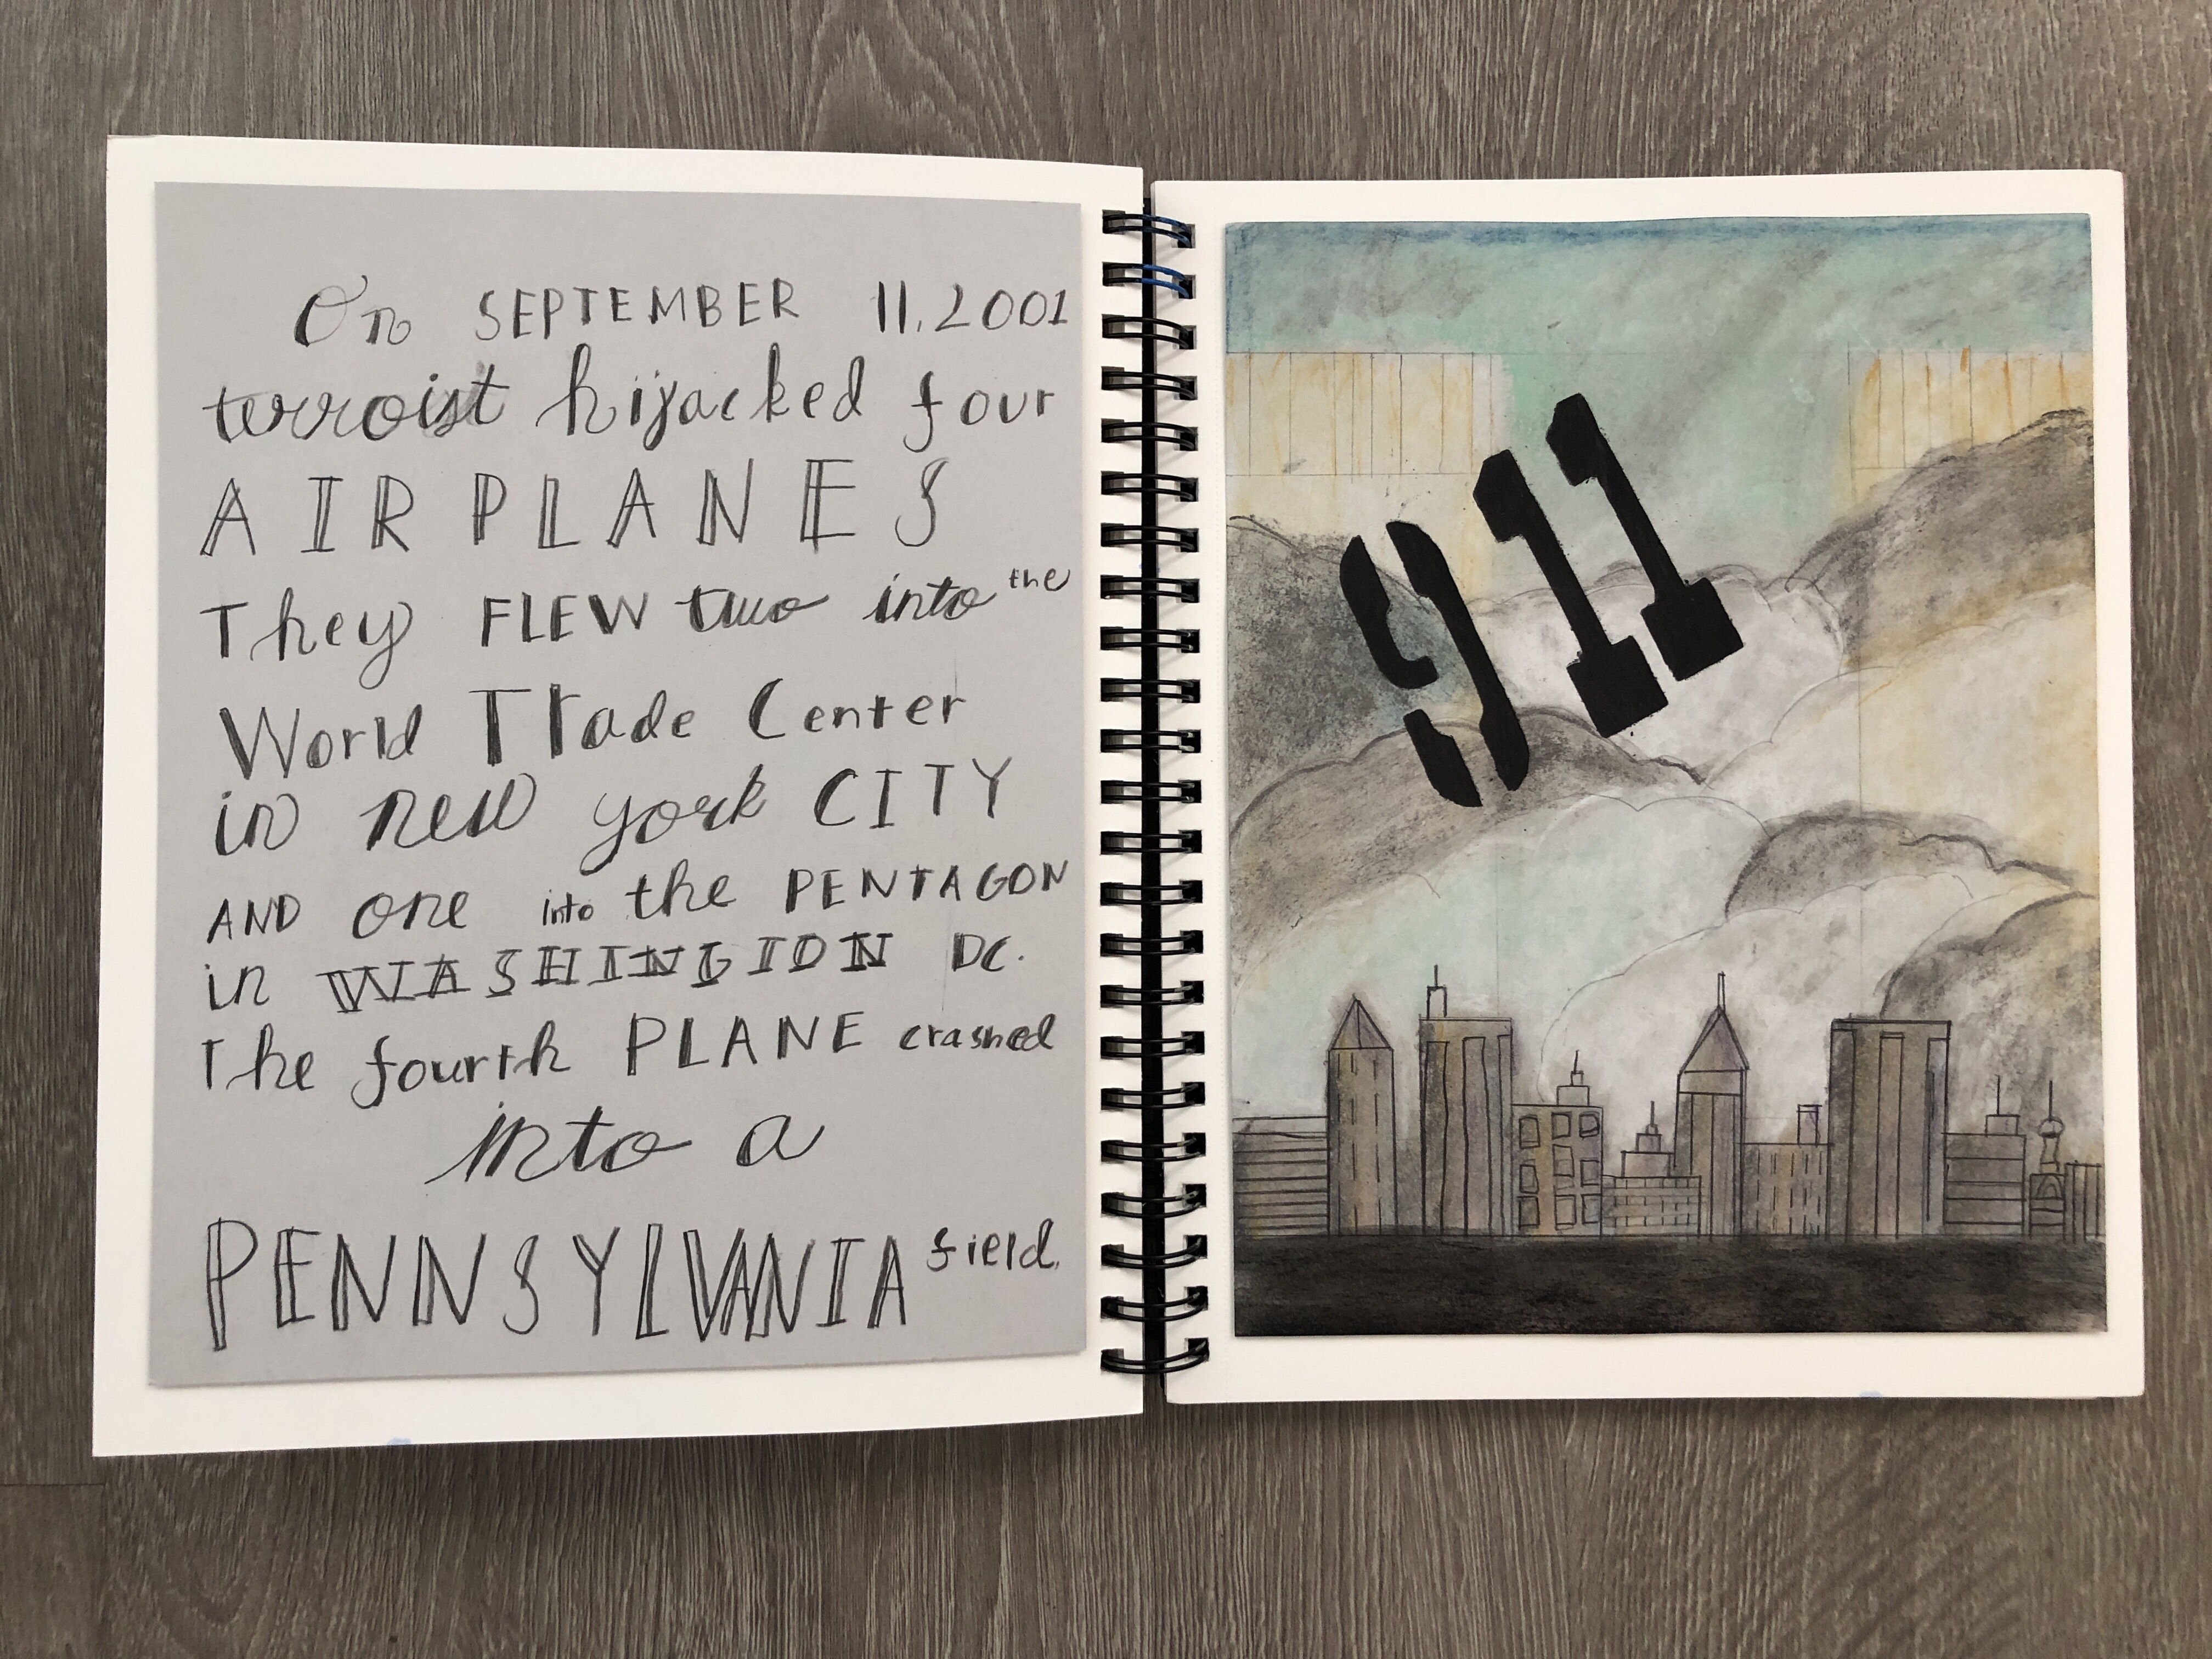 On SEPTEMBER 11, 2001
terroist hijacked four
AIRPLANES
They FLEW two into the
World Trade Center
in new york CITY
AND one into the PENTAGON
in WASHINGTON DC.
The fourth PLANE crashed
into a
PENNSYLVANIA field.
911